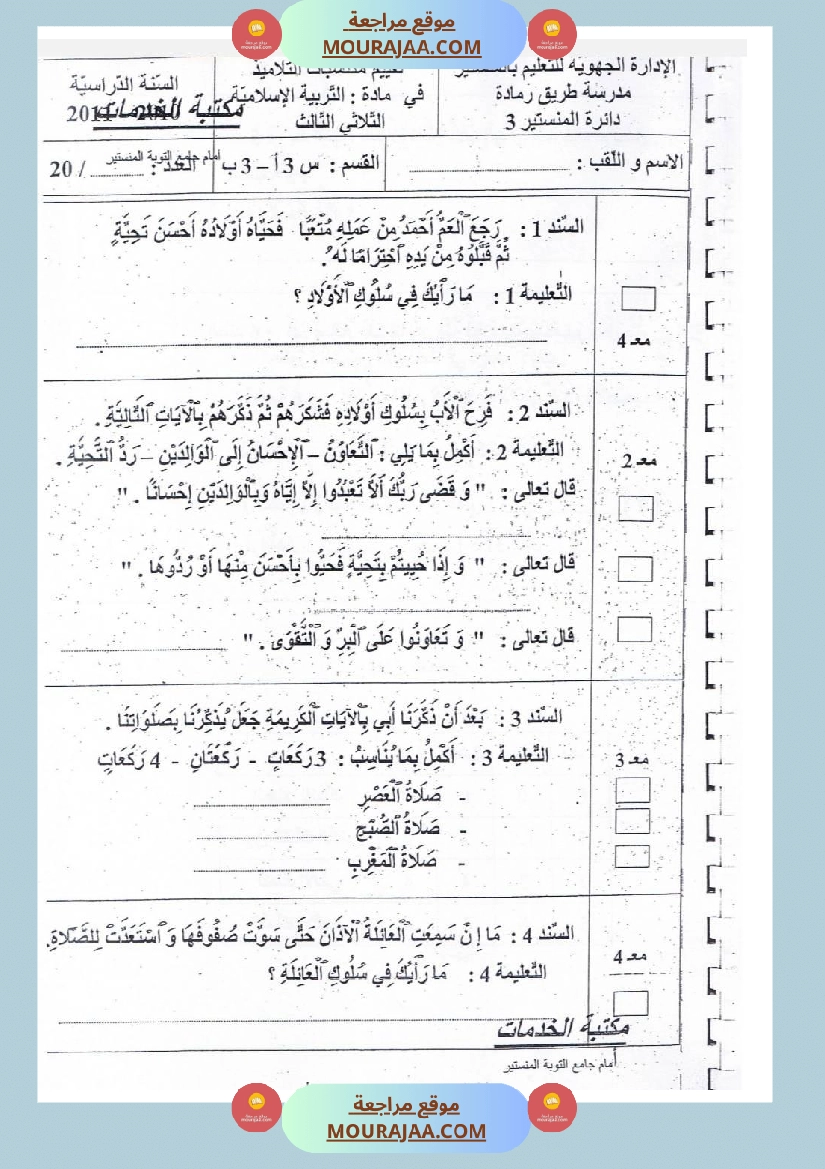 موقع مراجعة
MOURAJAA.COM
الإدارة الجهوية للتعليم بالمنستير
مدرسة طريق زمادة
دائرة المنستير 3
تقييم مكتسبات التلاميذ
في مادة : التربية الإسلامية
الثلاثي الثالث
السنة الدراسية
2010 2011
مكتبة الخدمات
أمام جامع التوبة المنستير
الاسم و اللقب :
القسم : س 3 أ – 3 ب
العدد : / 20
السند 1 : رَجَعَ ٱلْعَمُّ أَحْمَدُ مِنْ عَمَلِهِ مُتْعَبًا فَحَيَّاهُ أَوْلَادُهُ أَحْسَنَ تَحِيَّةٍ
ثُمَّ قَبَّلُوهُ مِنْ يَدِهِ ٱحْتِرَامًا لَهُ .
التعليمة 1 : مَا رَأْيُكَ فِي سُلُوكِ ٱلْأَوْلَادِ ؟
معـ 4
السند 2 : فَرِحَ ٱلْأَبُ بِسُلُوكِ أَوْلَادِهِ فَشَكَرَهُمْ ثُمَّ ذَكَّرَهُمْ بِٱلْآيَاتِ ٱلتَّالِيَةِ .
التعليمة 2 : أَكْمِلُ بِمَا يَلِي : ٱلتَّعَاوُنُ – ٱلْإِحْسَانُ إِلَى ٱلْوَالِدَيْنِ – رَدُّ ٱلتَّحِيَّةِ .
معـ 2
قال تعالى : " وَ قَضَى رَبُّكَ أَلاَّ تَعْبُدُوا إِلاَّ إِيَّاهُ وَبِٱلْوَالِدَيْنِ إِحْسَانًا . "
قال تعالى : " وَ إِذَا حُيِيتُمْ بِتَحِيَّةٍ فَحَيُّوا بِأَحْسَنَ مِنْهَا أَوْ رُدُّوهَا . "
قال تعالى : " وَ تَعَاوَنُوا عَلَى ٱلْبِرِّ وَ ٱلتَّقْوَى . "
السند 3 : بَعْدَ أَنْ ذَكَّرَنَا أَبِي بِٱلْآيَاتِ ٱلْكَرِيمَةِ جَعَلَ يُذَكِّرُنَا بِصَلَوَاتِنَا .
التعليمة 3 : أَكْمِلُ بِمَا يُنَاسِبُ : 3 رَكَعَاتٍ - رَكْعَتَانِ - 4 رَكَعَاتٍ
معـ 3
- صَلَاةُ ٱلْعَصْرِ
- صَلَاةُ ٱلصُّبْحِ
- صَلَاةُ ٱلْمَغْرِبِ
السند 4 : مَا إِنْ سَمِعَتِ ٱلْعَائِلَةُ ٱلْآذَانَ حَتَّى سَوَّتْ صُفُوفَهَا وَ ٱسْتَعَدَّتْ لِلصَّلَاةِ.
التعليمة 4 : مَا رَأْيُكَ فِي سُلُوكِ ٱلْعَائِلَةِ ؟
معـ 4
مكتبة الخدمات
أمام جامع التوبة المنستير
موقع مراجعة
MOURAJAA.COM